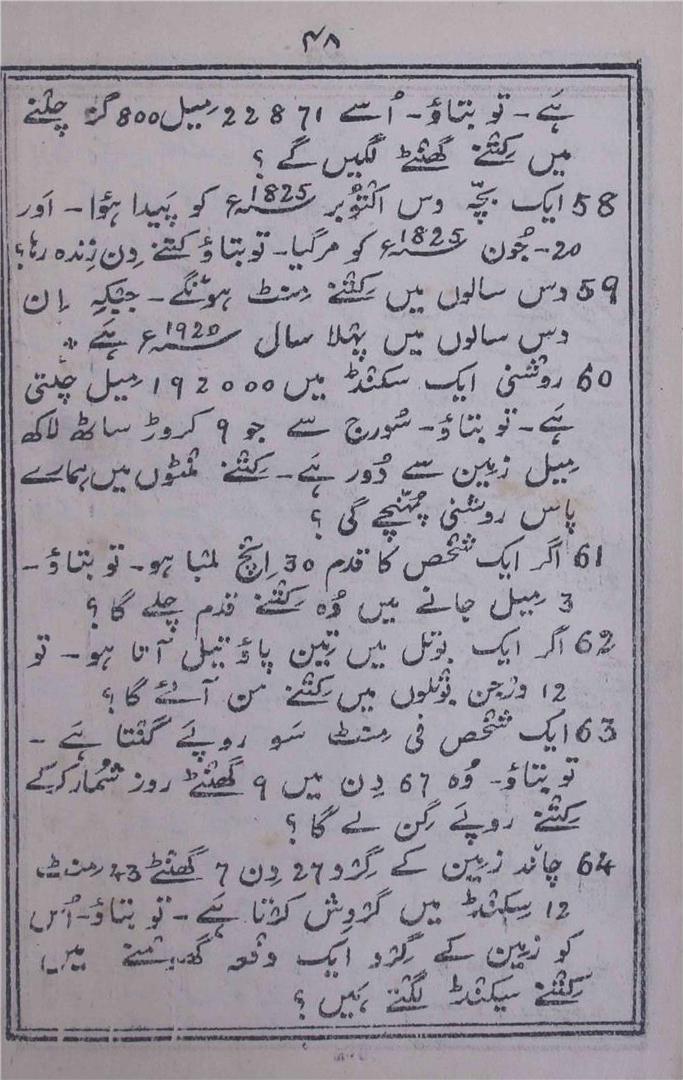 ۴۸
ہَے ۔ تو بتاؤ ۔ اُسے 22871 مِیل 800 گز چلنے
میں کِتنے گھنٹے لگیں گے ؟
58 ایک بچّہ دس اکتوبر 1825ء کو پَیدا ہؤا ۔ اَور
20 ۔ جُون 1825ء کو مرگیا ۔ تو بتاؤ کتنے دِن زِندہ رہا ؟
59 دس سالوں میں کِتنے مِنٹ ہونگے ۔ جبکہ اِن
دس سالوں میں پہلا سال 1920ء ہَے ۔
60 روشنی ایک سکنڈ میں 192000 مِیل چلتی
ہَے ۔ تو بتاؤ ۔ سُورج سے جو 9 کروڑ ساٹھ لاکھ
مِیل زمِین سے دُور ہَے ۔ کِتنے مِنٹوں میں ہمارے
پاس روشنی پہُنچے گی ؟
61 اگر ایک شخص کا قدم 30 اِنچ لمبا ہو ۔ تو بتاؤ ۔
3 مِیل جانے میں وُہ کِتنے قدم چلے گا ؟
62 اگر ایک بوتل میں تِین پاؤ تیل آتا ہو ۔ تو
12 درجن بوتلوں میں کِتنے من آئے گا ؟
63 ایک شخص فی مِنٹ سَو روپَے گنتا ہَے ۔
تو بتاؤ ۔ وُہ 67 دِن میں 9 گھنٹے روز شُمار کرکے
کِتنے روپَے گِن لے گا ؟
64 چاند زمِین کے گِرد 27 دِن 7 گھنٹے 43 مِنٹ
12 سِکنڈ میں گردِش کرتا ہَے ۔ تو بتاؤ ۔ اُس
کو زمِین کے گِرد ایک دفعہ گھُومنے میں
کِتنے سیکنڈ لگتے ہَیں ؟